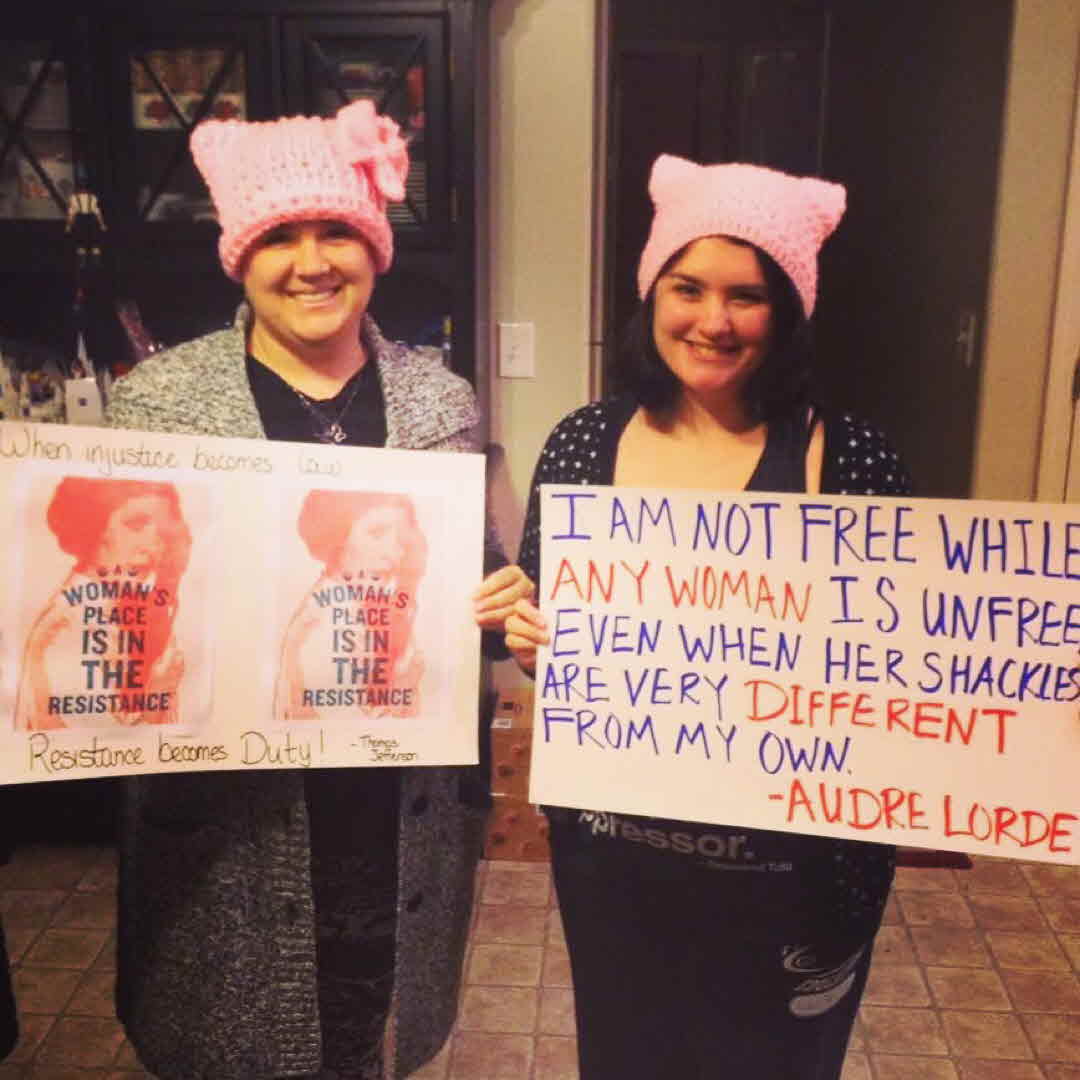 When injustice becomes Law
WOMAN'S
PLACE
IS IN
THE
RESISTANCE
WOMAN'S
PLACE
IS IN
THE
RESISTANCE
Resistance becomes Duty!
- Thomas
Jefferson
I AM NOT FREE WHILE
ANY WOMAN IS UNFREE,
EVEN WHEN HER SHACKLES
ARE VERY DIFFERENT
FROM MY OWN.
-AUDRE LORDE
pressor.